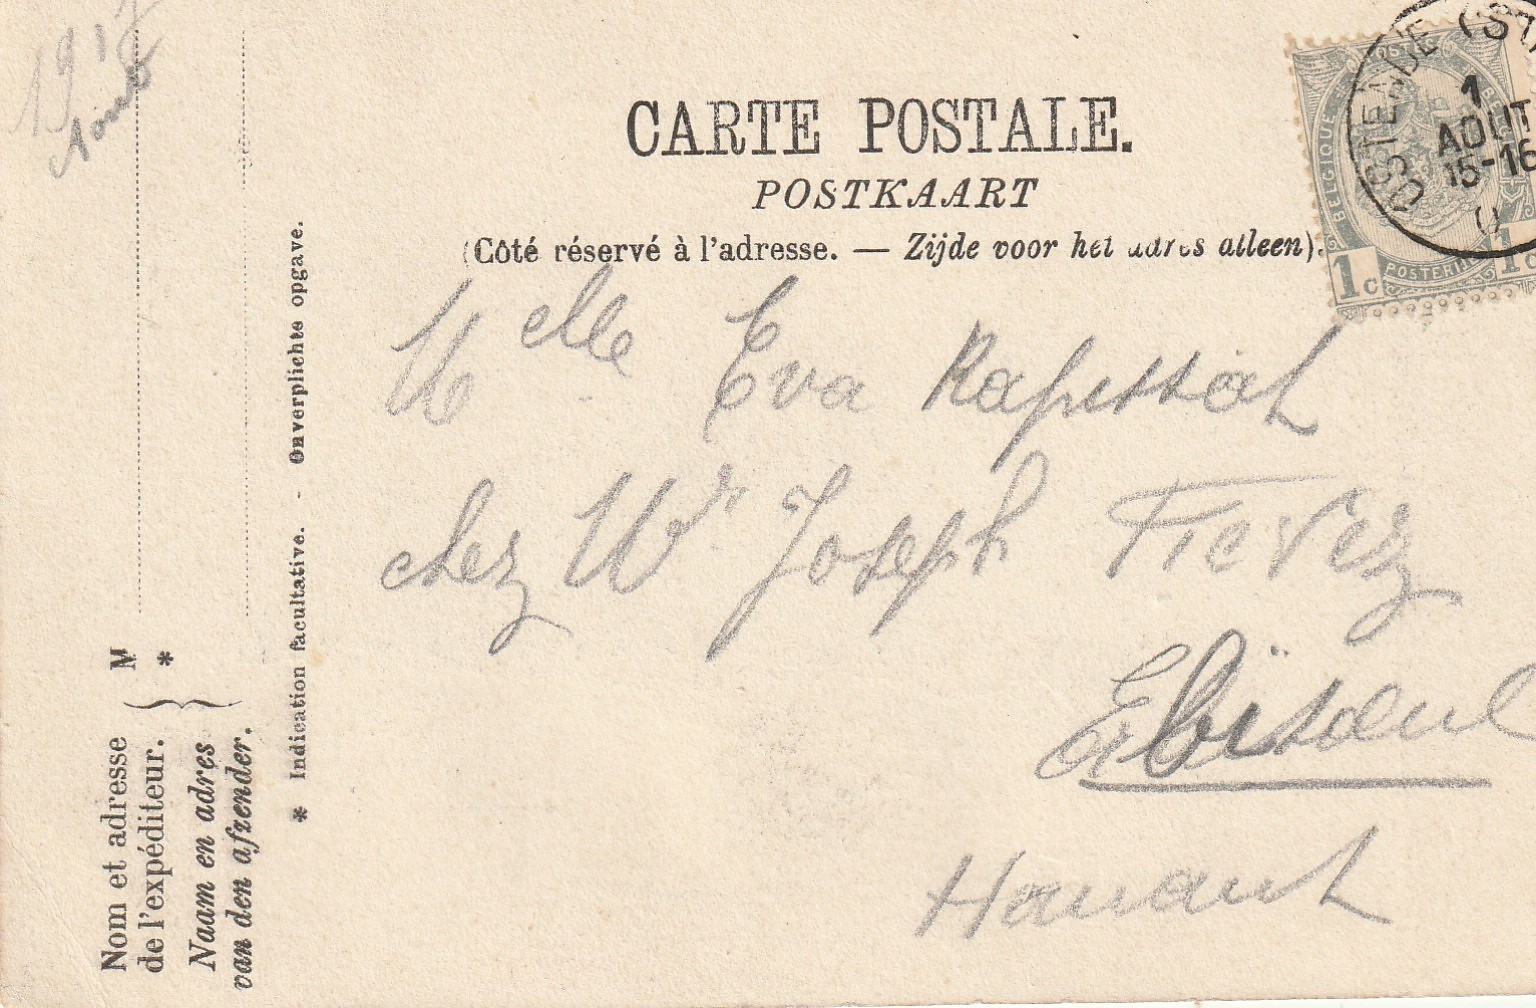 CARTE POSTALE.
POSTKAART
(Côté réservé à l'adresse. — Zijde voor het adres alleen).
OSTENDE (ST
1
AOUT
15-16
0
POSTES
BELGIQUE BELG
1c POSTERIJ 1c
Melle Eva
chez Mr Joseph Fievez
Hainaut
* Indication facultative. - Onverplichte opgave.
M
*
Nom et adresse
de l'expéditeur.
Naam en adres
van den afzender.